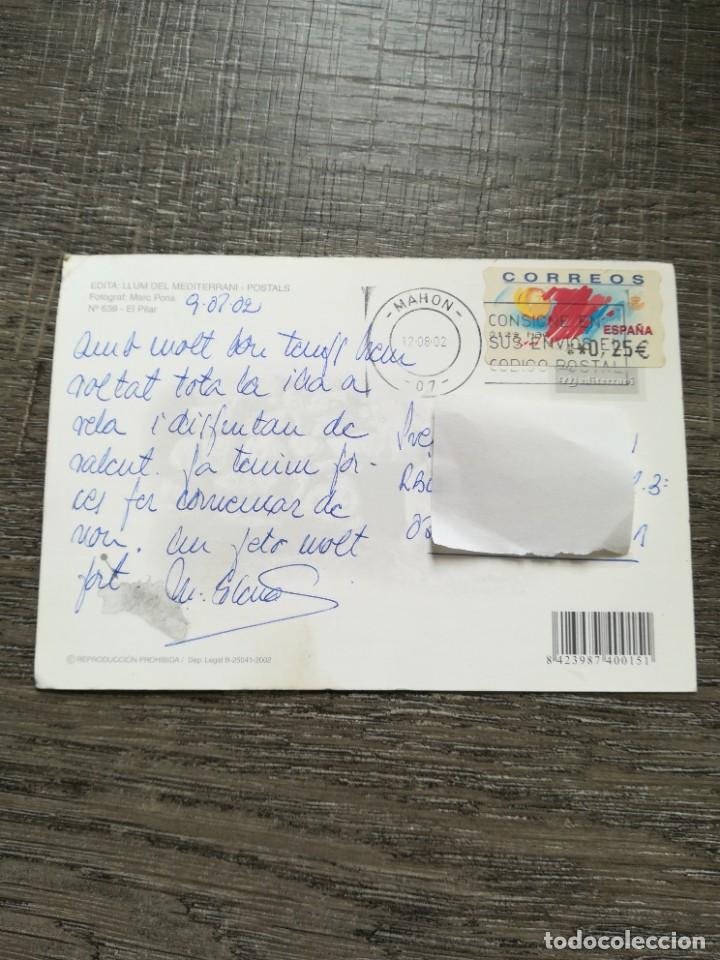 EDITA: LLUM DEL MEDITERRANI - POSTALS
Fotograf: Marc Pons
Nº 639 - El Pilar
CORREOS
ESPAÑA
*0,25€
MAHON
12-08-02
07
CONSIGNE EN
SUS ENVIOS EL
CODIGO POSTAL
amb molt bon temps hem
voltat tota la illa a
vela i disfrutan de
valent. Ja tenim for-
ces per comensar de
nou. Un peto molt
fort.
© REPRODUCCIÓN PROHIBIDA / Dep. Legal B-25041-2002
8 423987 400151
todocoleccion.net